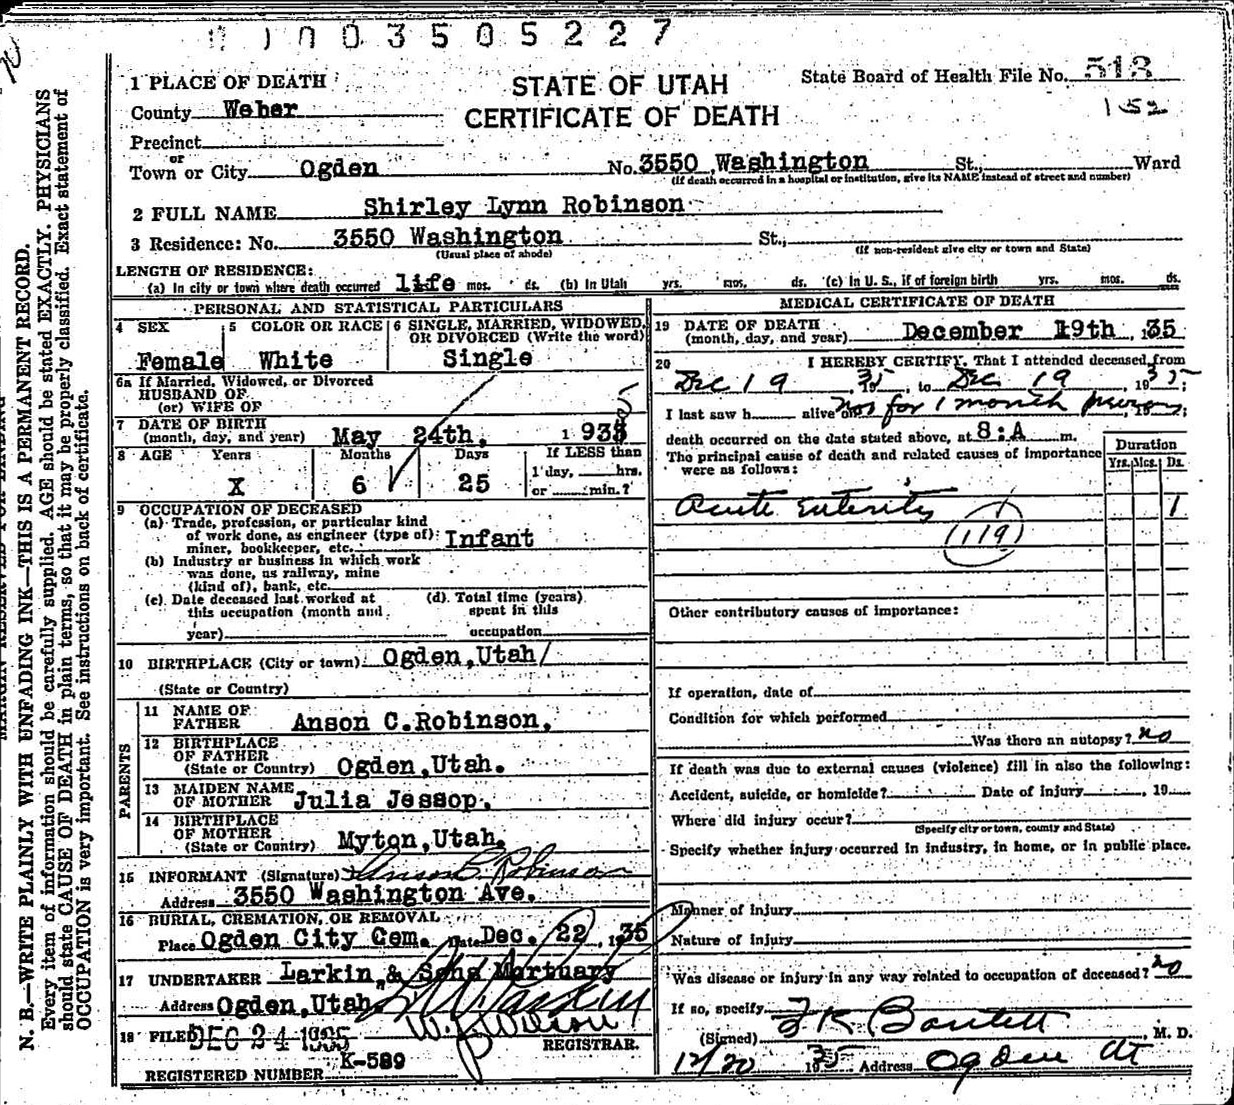 1003505227
1 PLACE OF DEATH
STATE OF UTAH
CERTIFICATE OF DEATH
State Board of Health File No. 513
152
County Weber
Precinct
or
Town or City Ogden No. 3550 Washington St., Ward
(If death occurred in a hospital or institution, give its NAME instead of street and number)
2 FULL NAME Shirley Lynn Robinson
3 Residence: No. 3550 Washington St.,
(Usual place of abode) (If non-resident give city or town and State)
LENGTH OF RESIDENCE:
(a) In city or town where death occurred life mos. ds. (b) In Utah yrs. mos. ds. (c) In U. S., if of foreign birth yrs. mos. ds.
PERSONAL AND STATISTICAL PARTICULARS
4 SEX 5 COLOR OR RACE 6 SINGLE, MARRIED, WIDOWED, OR DIVORCED (Write the word)
Female White Single
6a If Married, Widowed, or Divorced
HUSBAND OF
(or) WIFE OF
7 DATE OF BIRTH
(month, day, and year) May 24th, 1935
8 AGE Years Months Days If LESS than
1 day, hrs.
X 6 25 or min.?
9 OCCUPATION OF DECEASED
(a) Trade, profession, or particular kind
of work done, as engineer (type of):
miner, bookkeeper, etc. Infant
(b) Industry or business in which work
was done, as railway, mine
(kind of), bank, etc.
(c) Date deceased last worked at
this occupation (month and
year)
(d) Total time (years)
spent in this
occupation
10 BIRTHPLACE (City or town) Ogden, Utah
(State or Country)
PARENTS
11 NAME OF
FATHER Anson C. Robinson,
12 BIRTHPLACE
OF FATHER
(State or Country) Ogden, Utah.
13 MAIDEN NAME
OF MOTHER Julia Jessop.
14 BIRTHPLACE
OF MOTHER
(State or Country) Myton, Utah.
15 INFORMANT (Signature) Anson C. Robinson
Address 3550 Washington Ave.
16 BURIAL, CREMATION, OR REMOVAL
Place Ogden City Cem. Date Dec. 22, 1935
17 UNDERTAKER Larkin, & Sons Mortuary
Address Ogden, Utah.
18 FILED DEC 24 1935
REGISTRAR.
REGISTERED NUMBER K-589
MEDICAL CERTIFICATE OF DEATH
19 DATE OF DEATH
(month, day, and year) December 19th, 35
20 I HEREBY CERTIFY, That I attended deceased from
Dec 19 1935, to Dec 19 1935;
I last saw h alive on not for 1 month previous, 19;
death occurred on the date stated above, at 8:A m.
The principal cause of death and related causes of importance
were as follows:
Duration
Yrs. Mos. Ds.
Acute Enteritis 1
119
Other contributory causes of importance:
If operation, date of
Condition for which performed
Was there an autopsy? no
If death was due to external causes (violence) fill in also the following:
Accident, suicide, or homicide? Date of injury, 19
Where did injury occur?
(Specify city or town, county and State)
Specify whether injury occurred in industry, in home, or in public place.
Manner of injury
Nature of injury
Was disease or injury in any way related to occupation of deceased? no
If so, specify
(Signed) Bartlett, M. D.
12/20 1935 Address Ogden Ut
N. B.—WRITE PLAINLY WITH UNFADING INK—THIS IS A PERMANENT RECORD.
Every item of information should be carefully supplied. AGE should be stated EXACTLY. PHYSICIANS
should state CAUSE OF DEATH in plain terms, so that it may be properly classified. Exact statement of
OCCUPATION is very important. See instructions on back of certificate.